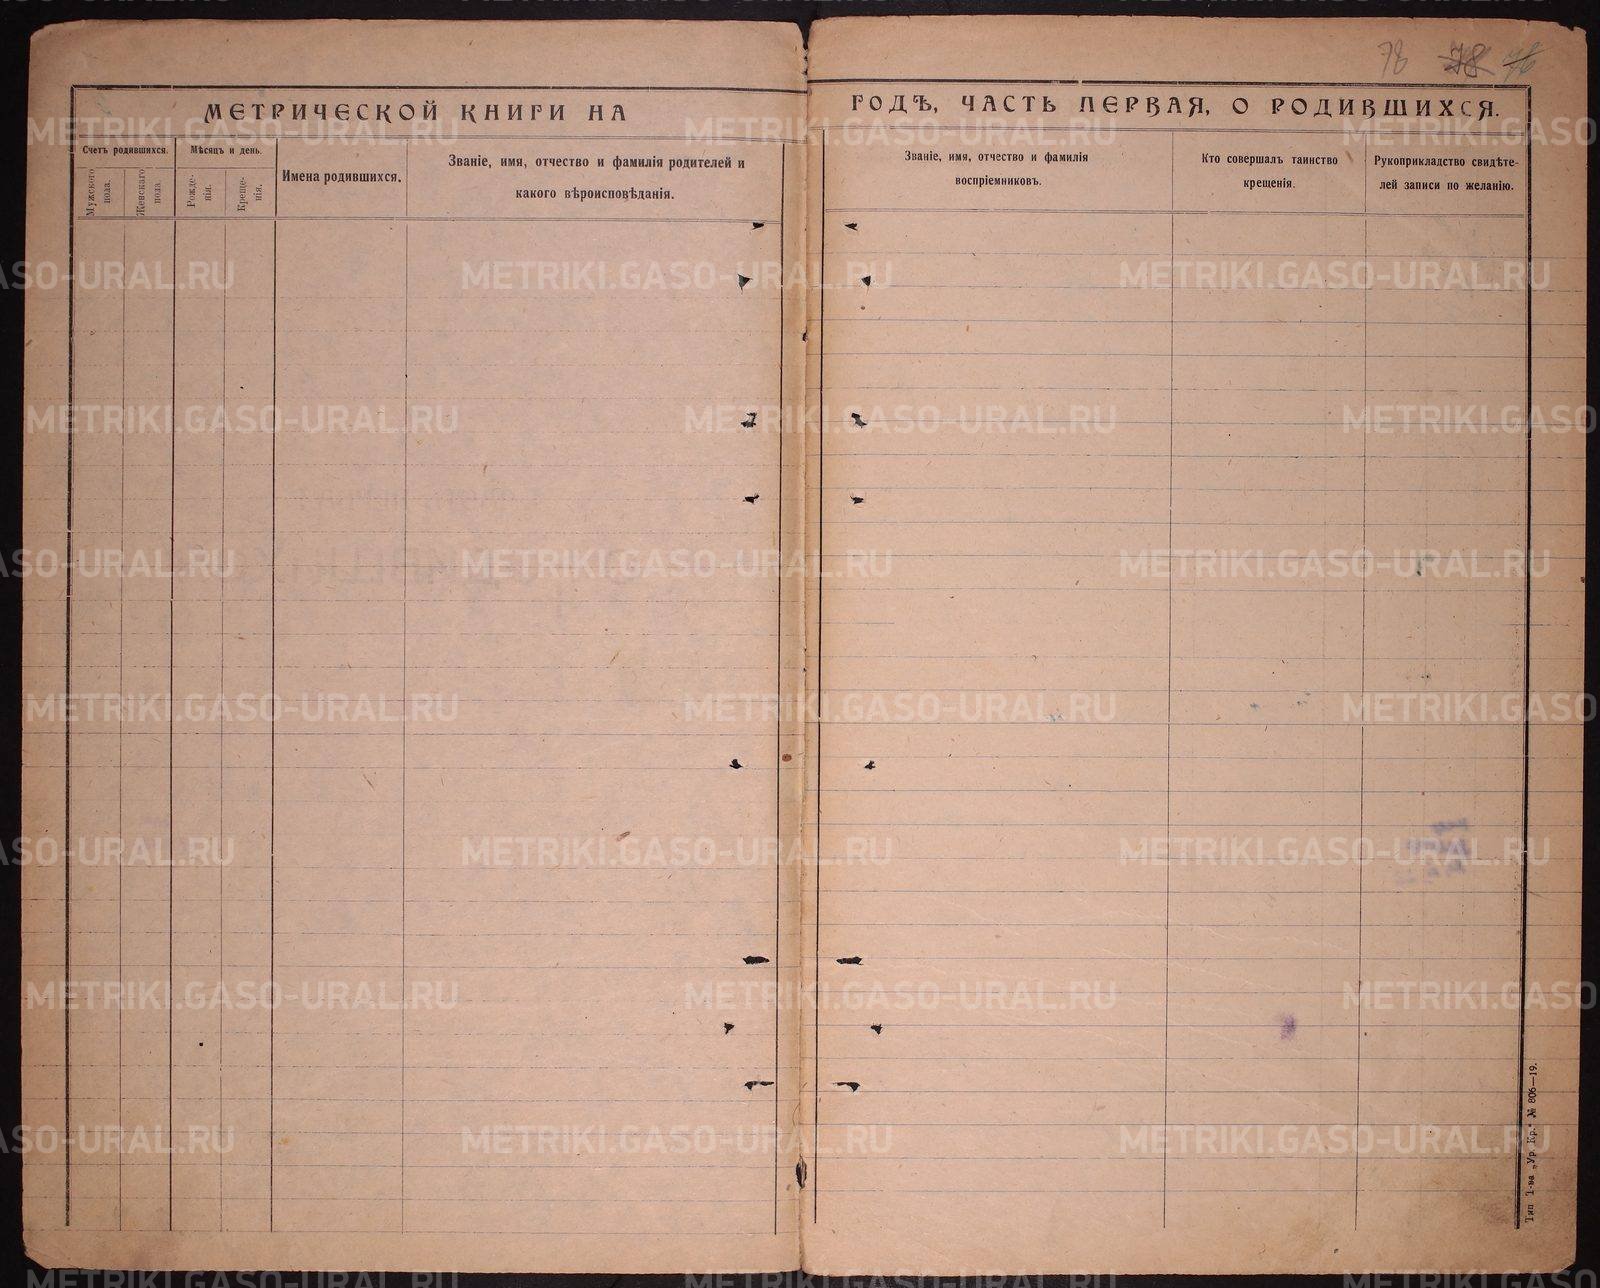 78 78 78
МЕТРИЧЕСКОЙ КНИГИ НА
ГОДЪ, ЧАСТЬ ПЕРВАЯ, О РОДИВШИХСЯ.
Счетъ родившихся.
Мужского пола.
Женскаго пола.
Мѣсяцъ и день.
Рожде-
нія.
Креще-
нія.
Имена родившихся.
Званіе, имя, отчество и фамилія родителей и
какого вѣроисповѣданія.
Званіе, имя, отчество и фамилія
воспріемниковъ.
Кто совершалъ таинство
крещенія.
Рукоприкладство свидѣте-
лей записи по желанію.
Тип. Т-ва „Ур. Кр.“ № 806—19.
METRIKI.GASO-URAL.RU